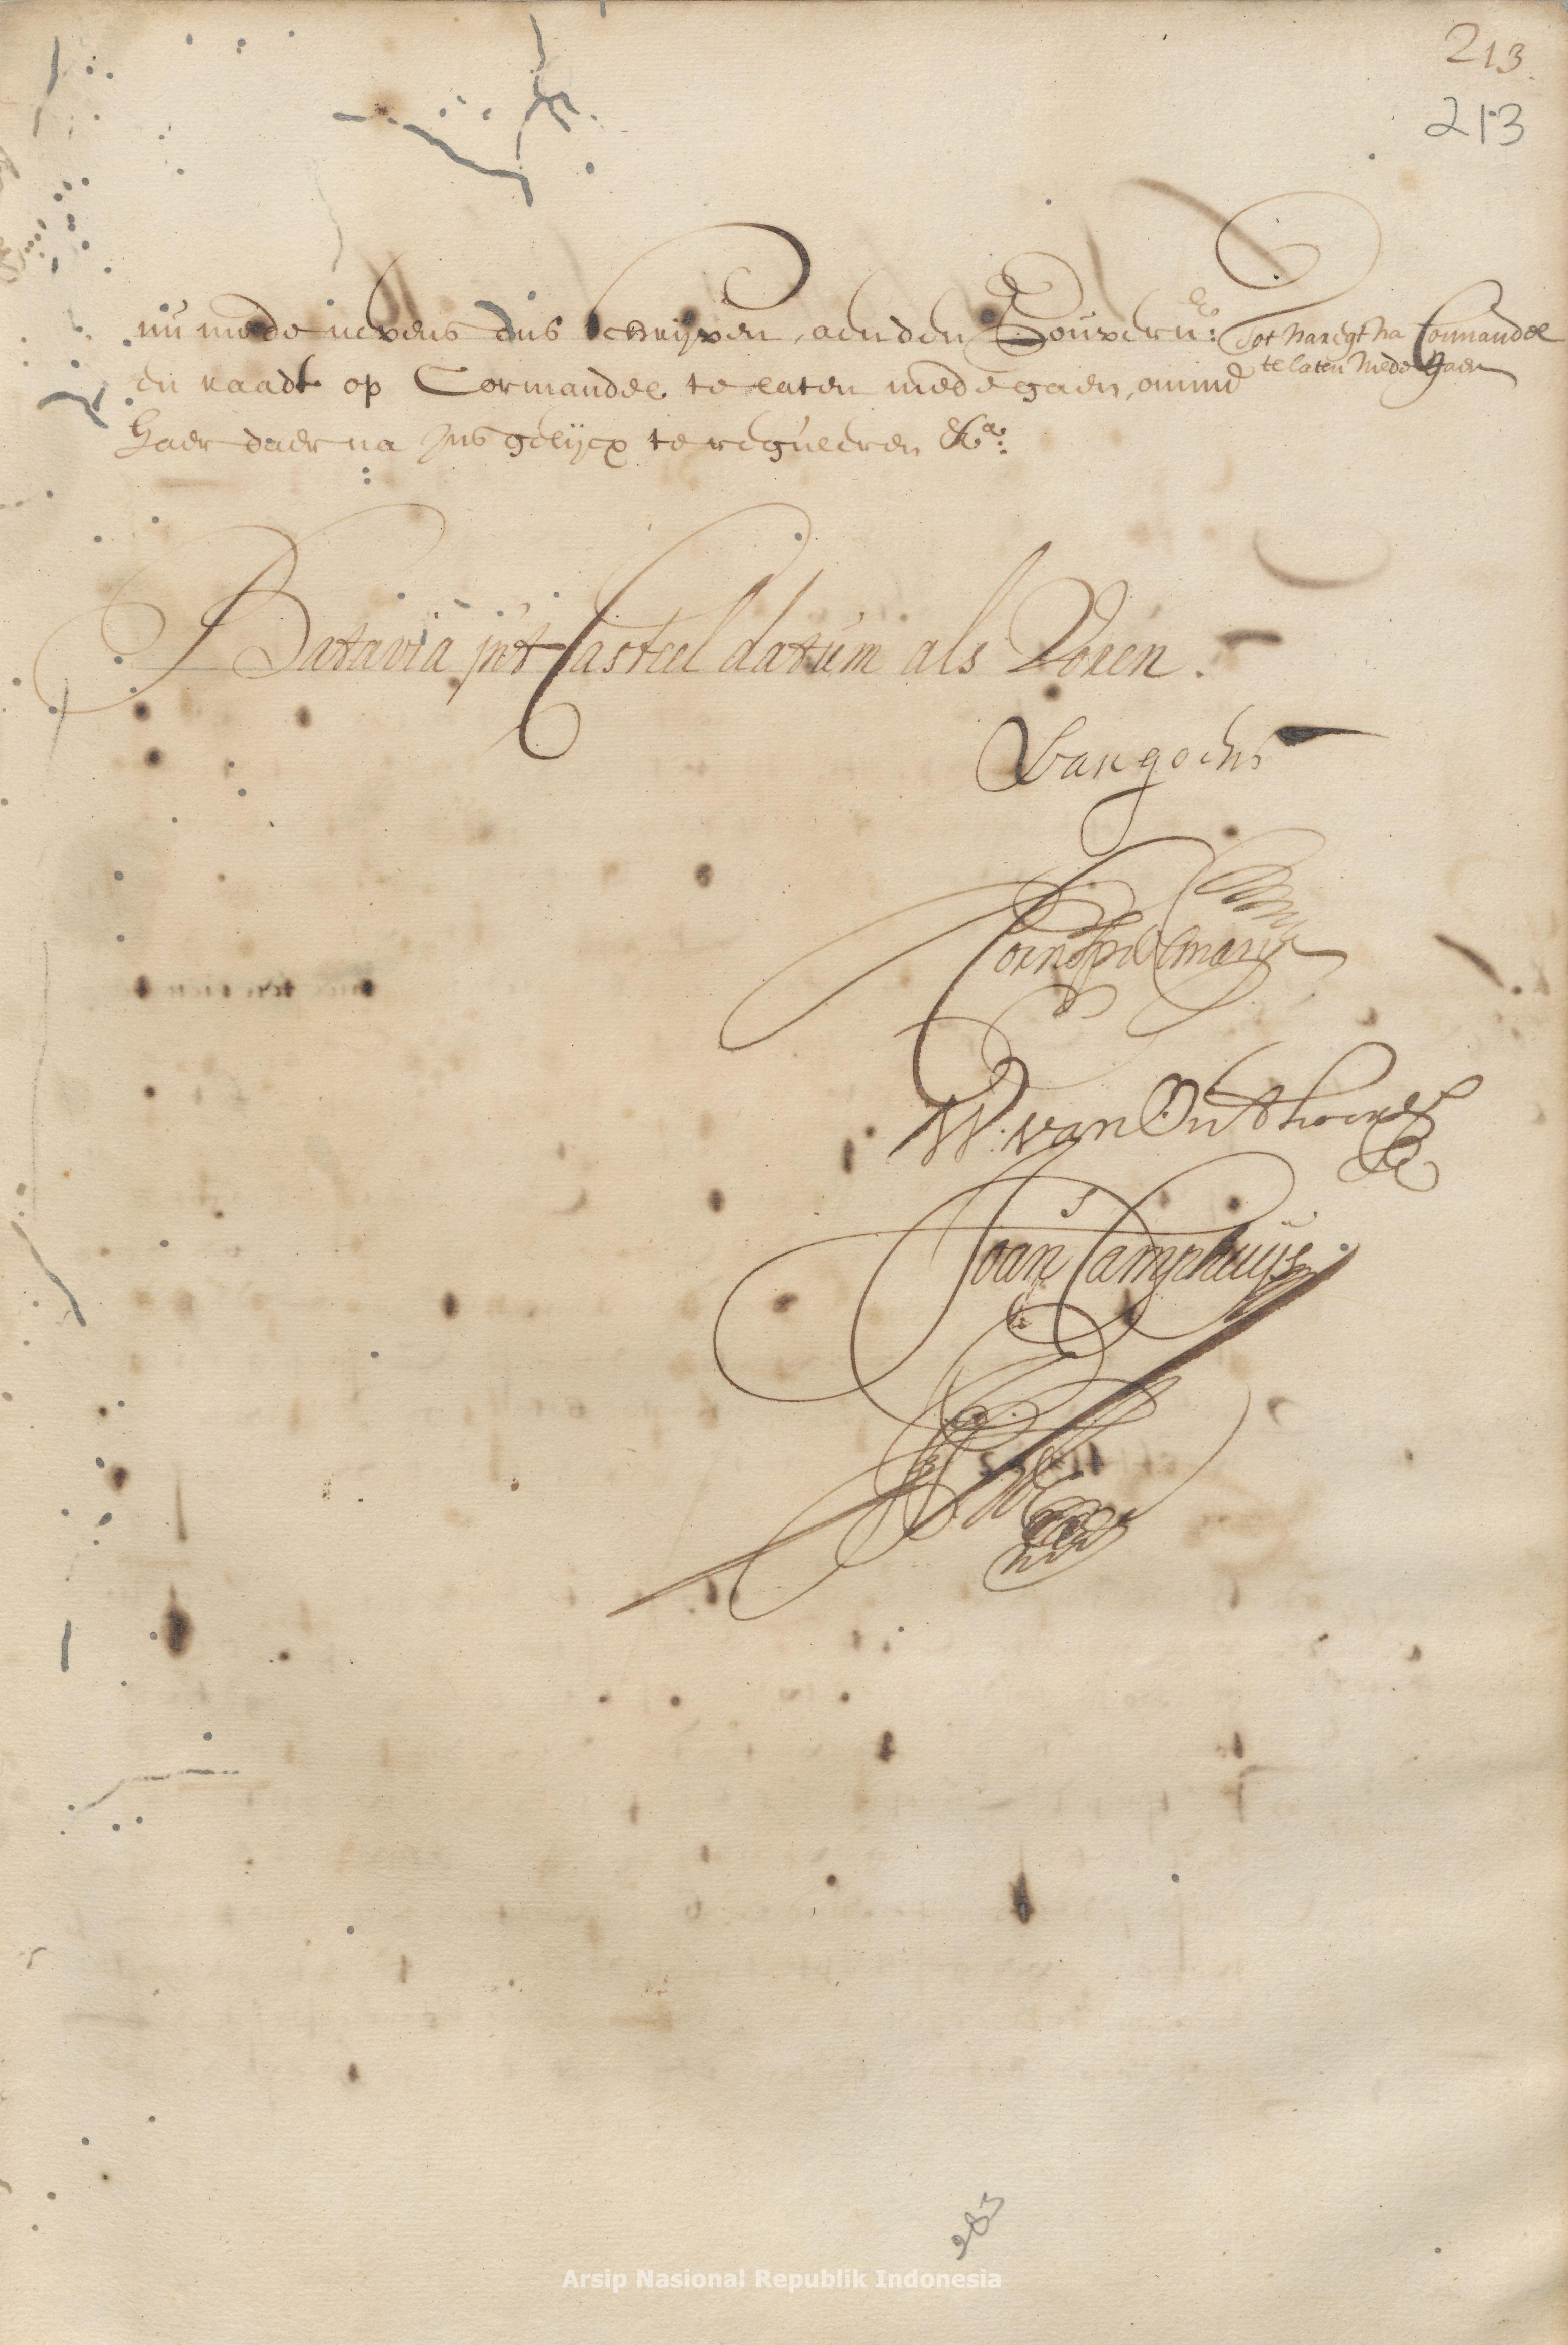 213
213
nu mede nevens ons schrijven, aen den Gouvernr:
en raadt op Cormandel te laten mede gaen, omme
haer daer na Insgelijcx te reguleren &a:
Tot narigt na Cormandel
te laten mede gaen
Batavia int Casteel datum als Voren.
Van goens
Corn Speelman
W. van Outhoorn
Joan Camphuijs
283
Arsip Nasional Republik Indonesia